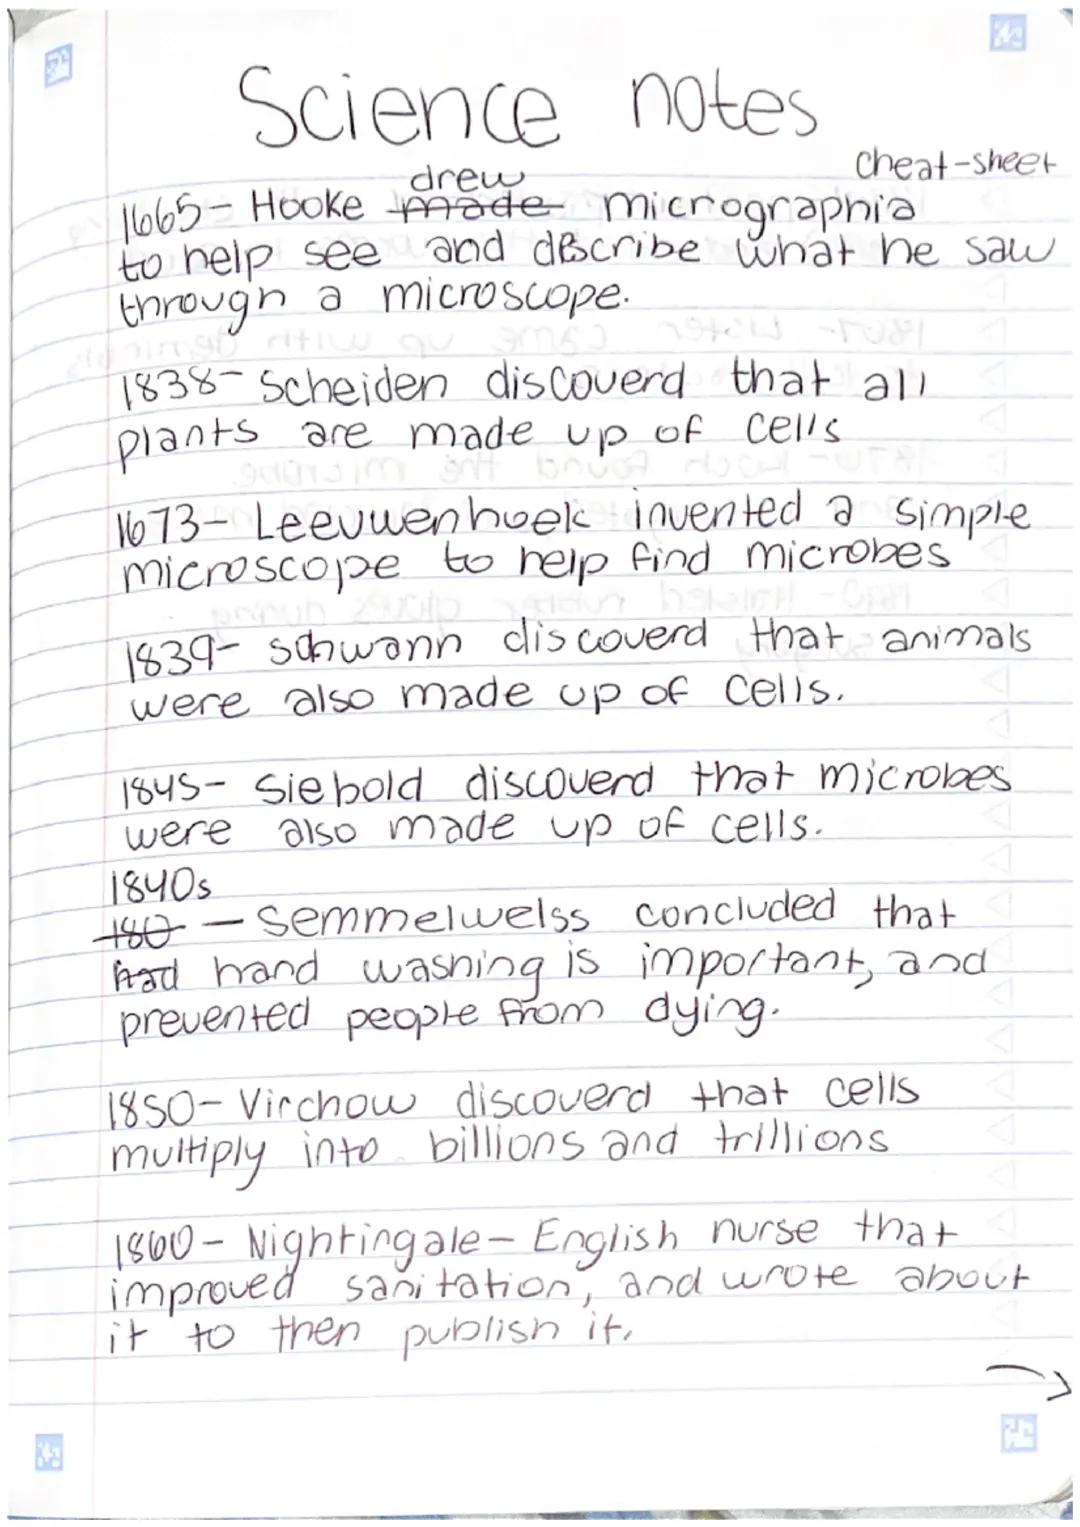 Science notes
cheat-sheet
drew
1665- Hooke made micrographia
to help see and describe what he saw
through a microscope.
1838- Scheiden discoverd that all
plants are made up of cells
1673- Leevwenhoek invented a simple
microscope to help find microbes
1839- schwann discoverd that animals
were also made up of cells.
1845- Siebold discoverd that microbes
were also made up of cells.
1840s
180 - Semmelwelss concluded that
had hand washing is important, and
prevented people from dying.
1850- Virchow discoverd that cells
multiply into billions and trillions
1860- Nightingale- English nurse that
improved sanitation, and wrote about
it to then publish it.